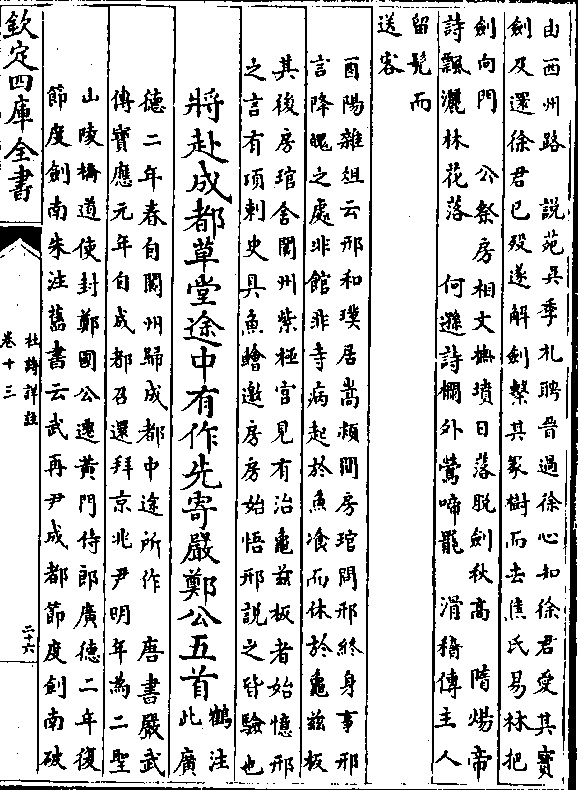 由西州路　說苑吳季札聘晉過徐心知徐君愛其寶
劍及還徐君已殁遂解劍繫其冢樹而去焦氏易林把
劍向門　公祭房相文撫墳日落脫劍秋高　隋煬帝
詩飄灑林花落　何遜詩欄外鶯啼罷　滑稽傳主人
留髡而
送客
酉陽雜俎云邢和璞居嵩潁間房琯問邢終身事邢
言降魄之處非館非寺病起於魚飡而休於龜兹板
其後房琯舍閬州紫極宫見有治龜兹板者始憶邢
之言有頃刺史具魚鱠邀房房始悟邢說之皆驗也
將赴成都草堂途中有作先寄嚴鄭公五首
鶴注
此廣
德二年春自閬州歸成都中途所作　唐書嚴武
傳寶應元年自成都召還拜京兆尹明年為二聖
山陵橋道使封鄭國公遷黃門侍郎廣德二年復
節度劍南朱注舊書云武再尹成都節度劍南破
欽定四庫全書
杜詩詳註
卷十三
二十六